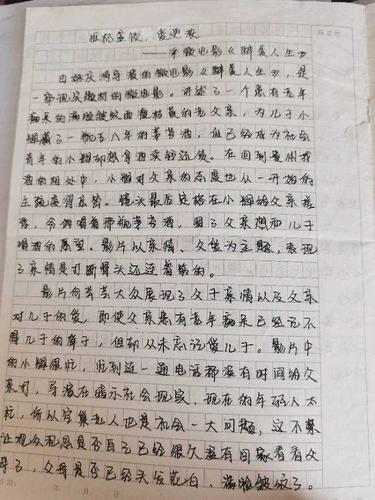 举杯豪饮，岁近暮
——评微电影《醉美人生》
由姚庆涛导演的微电影《醉美人生》，是
一部现实题材的微电影。讲述了一个患有老年
痴呆的满脸皱纹面容枯黄的老父亲，为儿子小
辉藏了一瓶三八年的茅台酒，但已经成为社会
青年的小辉却想拿酒卖钱还债。在回到贵州找
酒的相处中，小辉对父亲的态度也从一开始的
生疏变得亲密。镜头最后定格在小辉给父亲捶
背，令他喝着那瓶茅台酒，圆了父亲想和儿子
喝酒的愿望。影片以亲情、父爱为主题，表现
了亲情是打断骨头还连着筋的。
影片向芸芸大众展现了父子亲情以及父亲
对儿子的爱，即使父亲患有老年痴呆已经记不
得儿子的样子，但却从未忘记爱儿子。影片中
的小辉很忙，忙到连一通电话都没有时间给父
亲打，导演在暗示社会现实，现在的年轻人太
忙，所以空巢老人也是社会一大问题，这不禁
让观众观思是否自己已经很久没有回家看看父
母了，父母是否已经头发花白，满脸皱纹了。